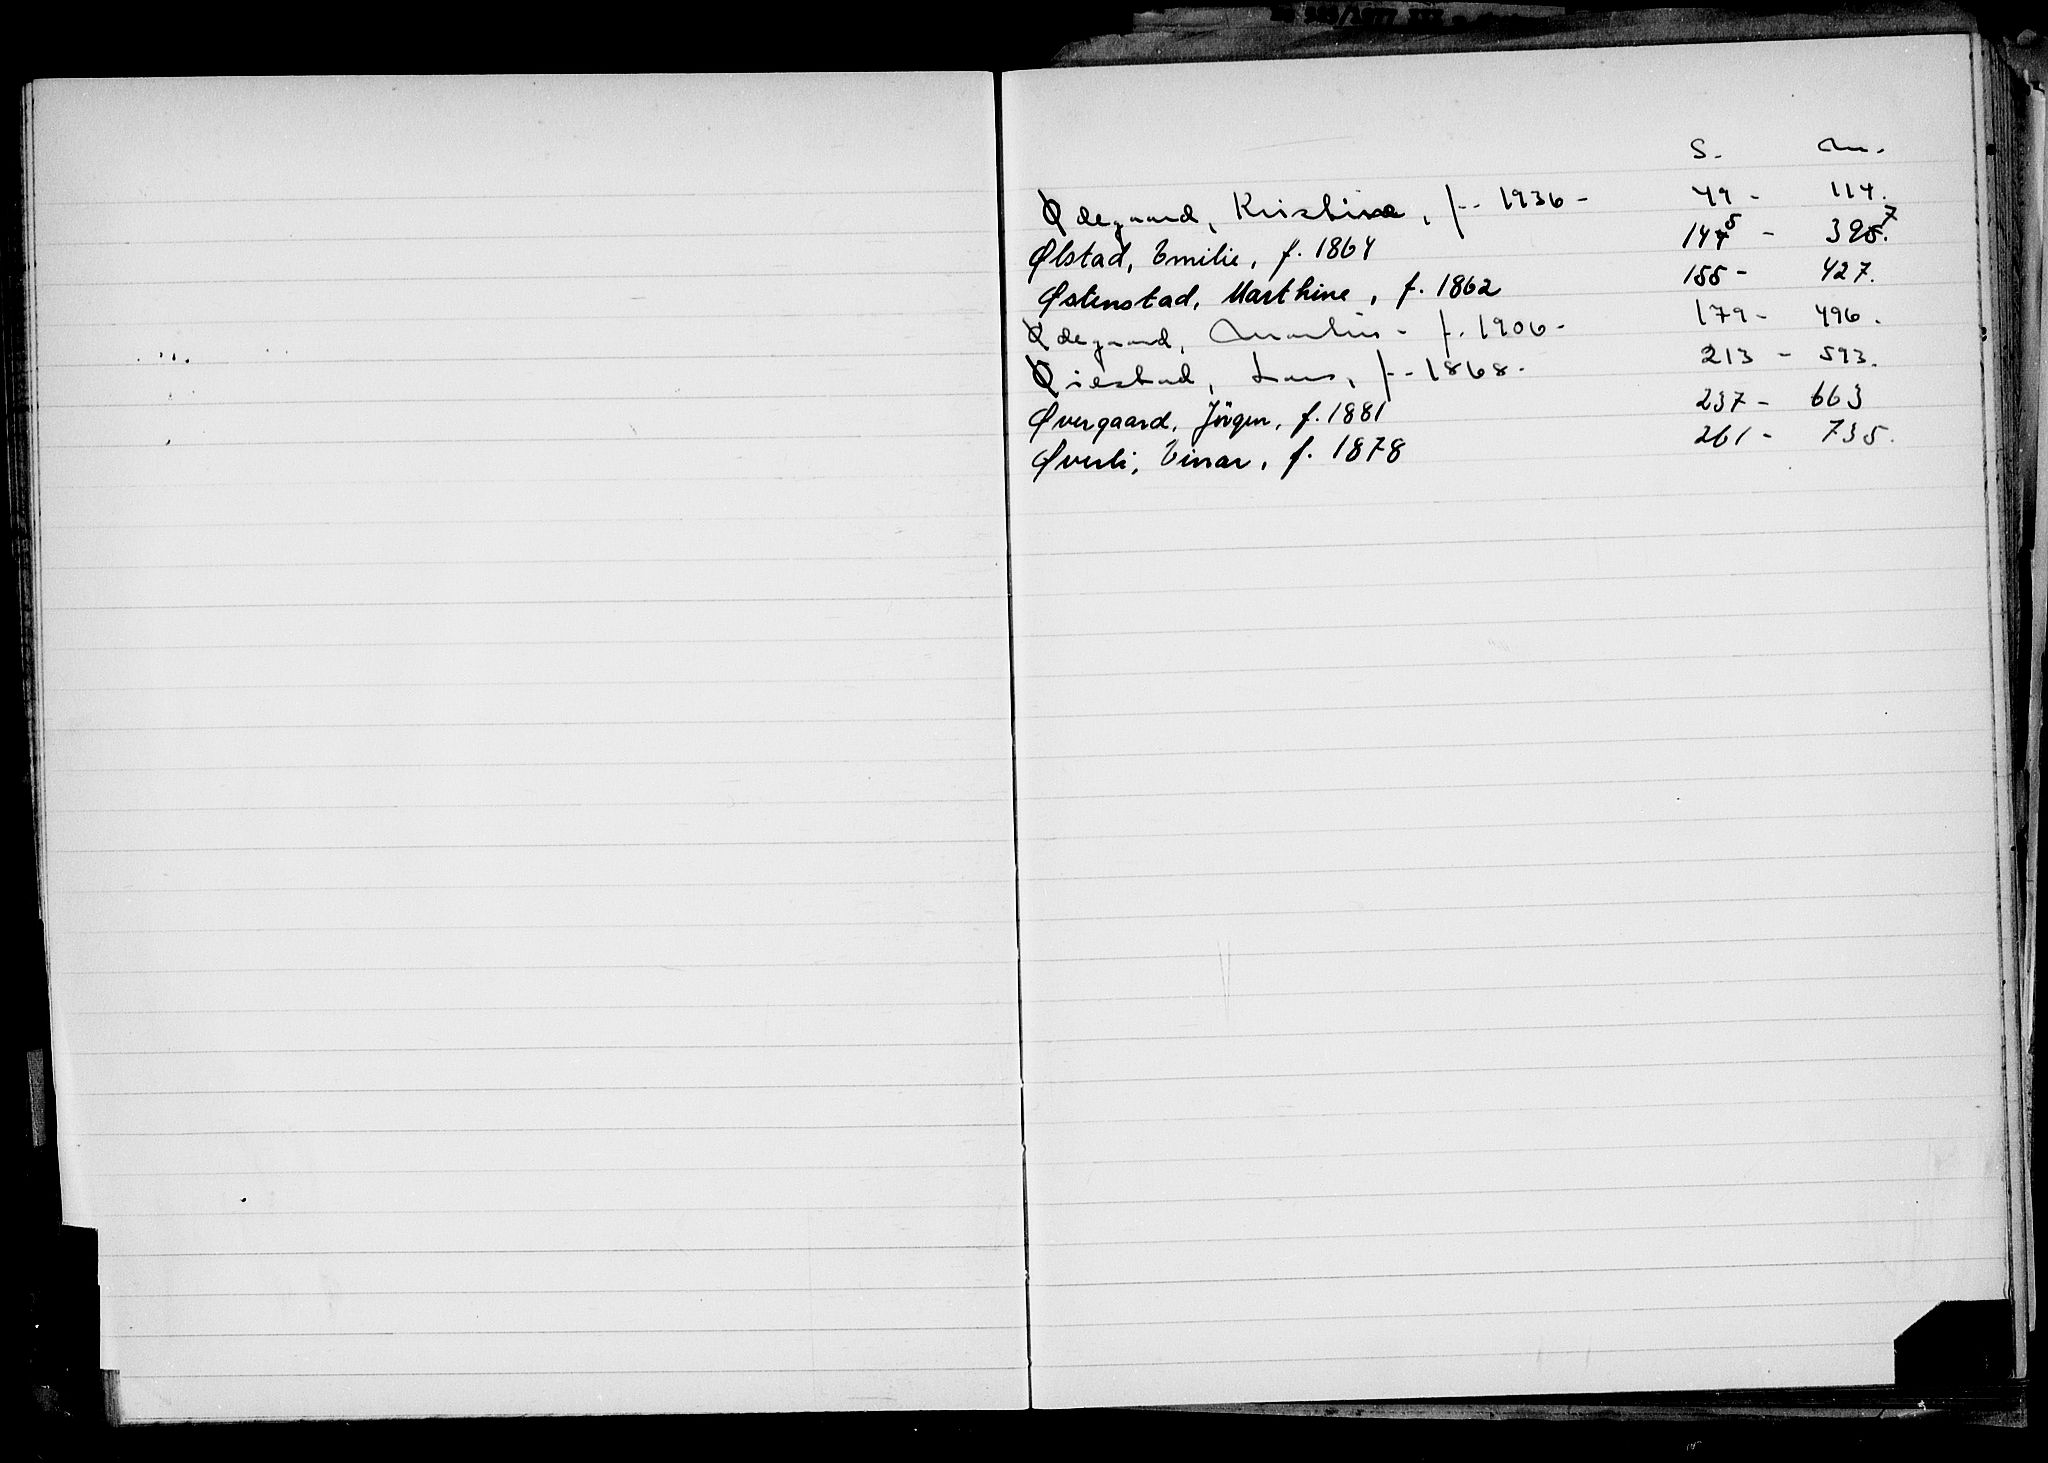 S. nr.
Ødegaard, Kristine, f. 1936 - 49 - 114.
Ølstad, Emilie, f. 1864 145 - 397.
Østenstad, Marthine, f. 1862 155 - 427.
Ødegaard, Martin - f. 1906 - 179 - 496.
Øiestad, Lars, f. 1868. 213 - 593.
Øvergaard, Jörgen, f. 1881 237 - 663
Øverli, Einar, f. 1878 261 - 735.